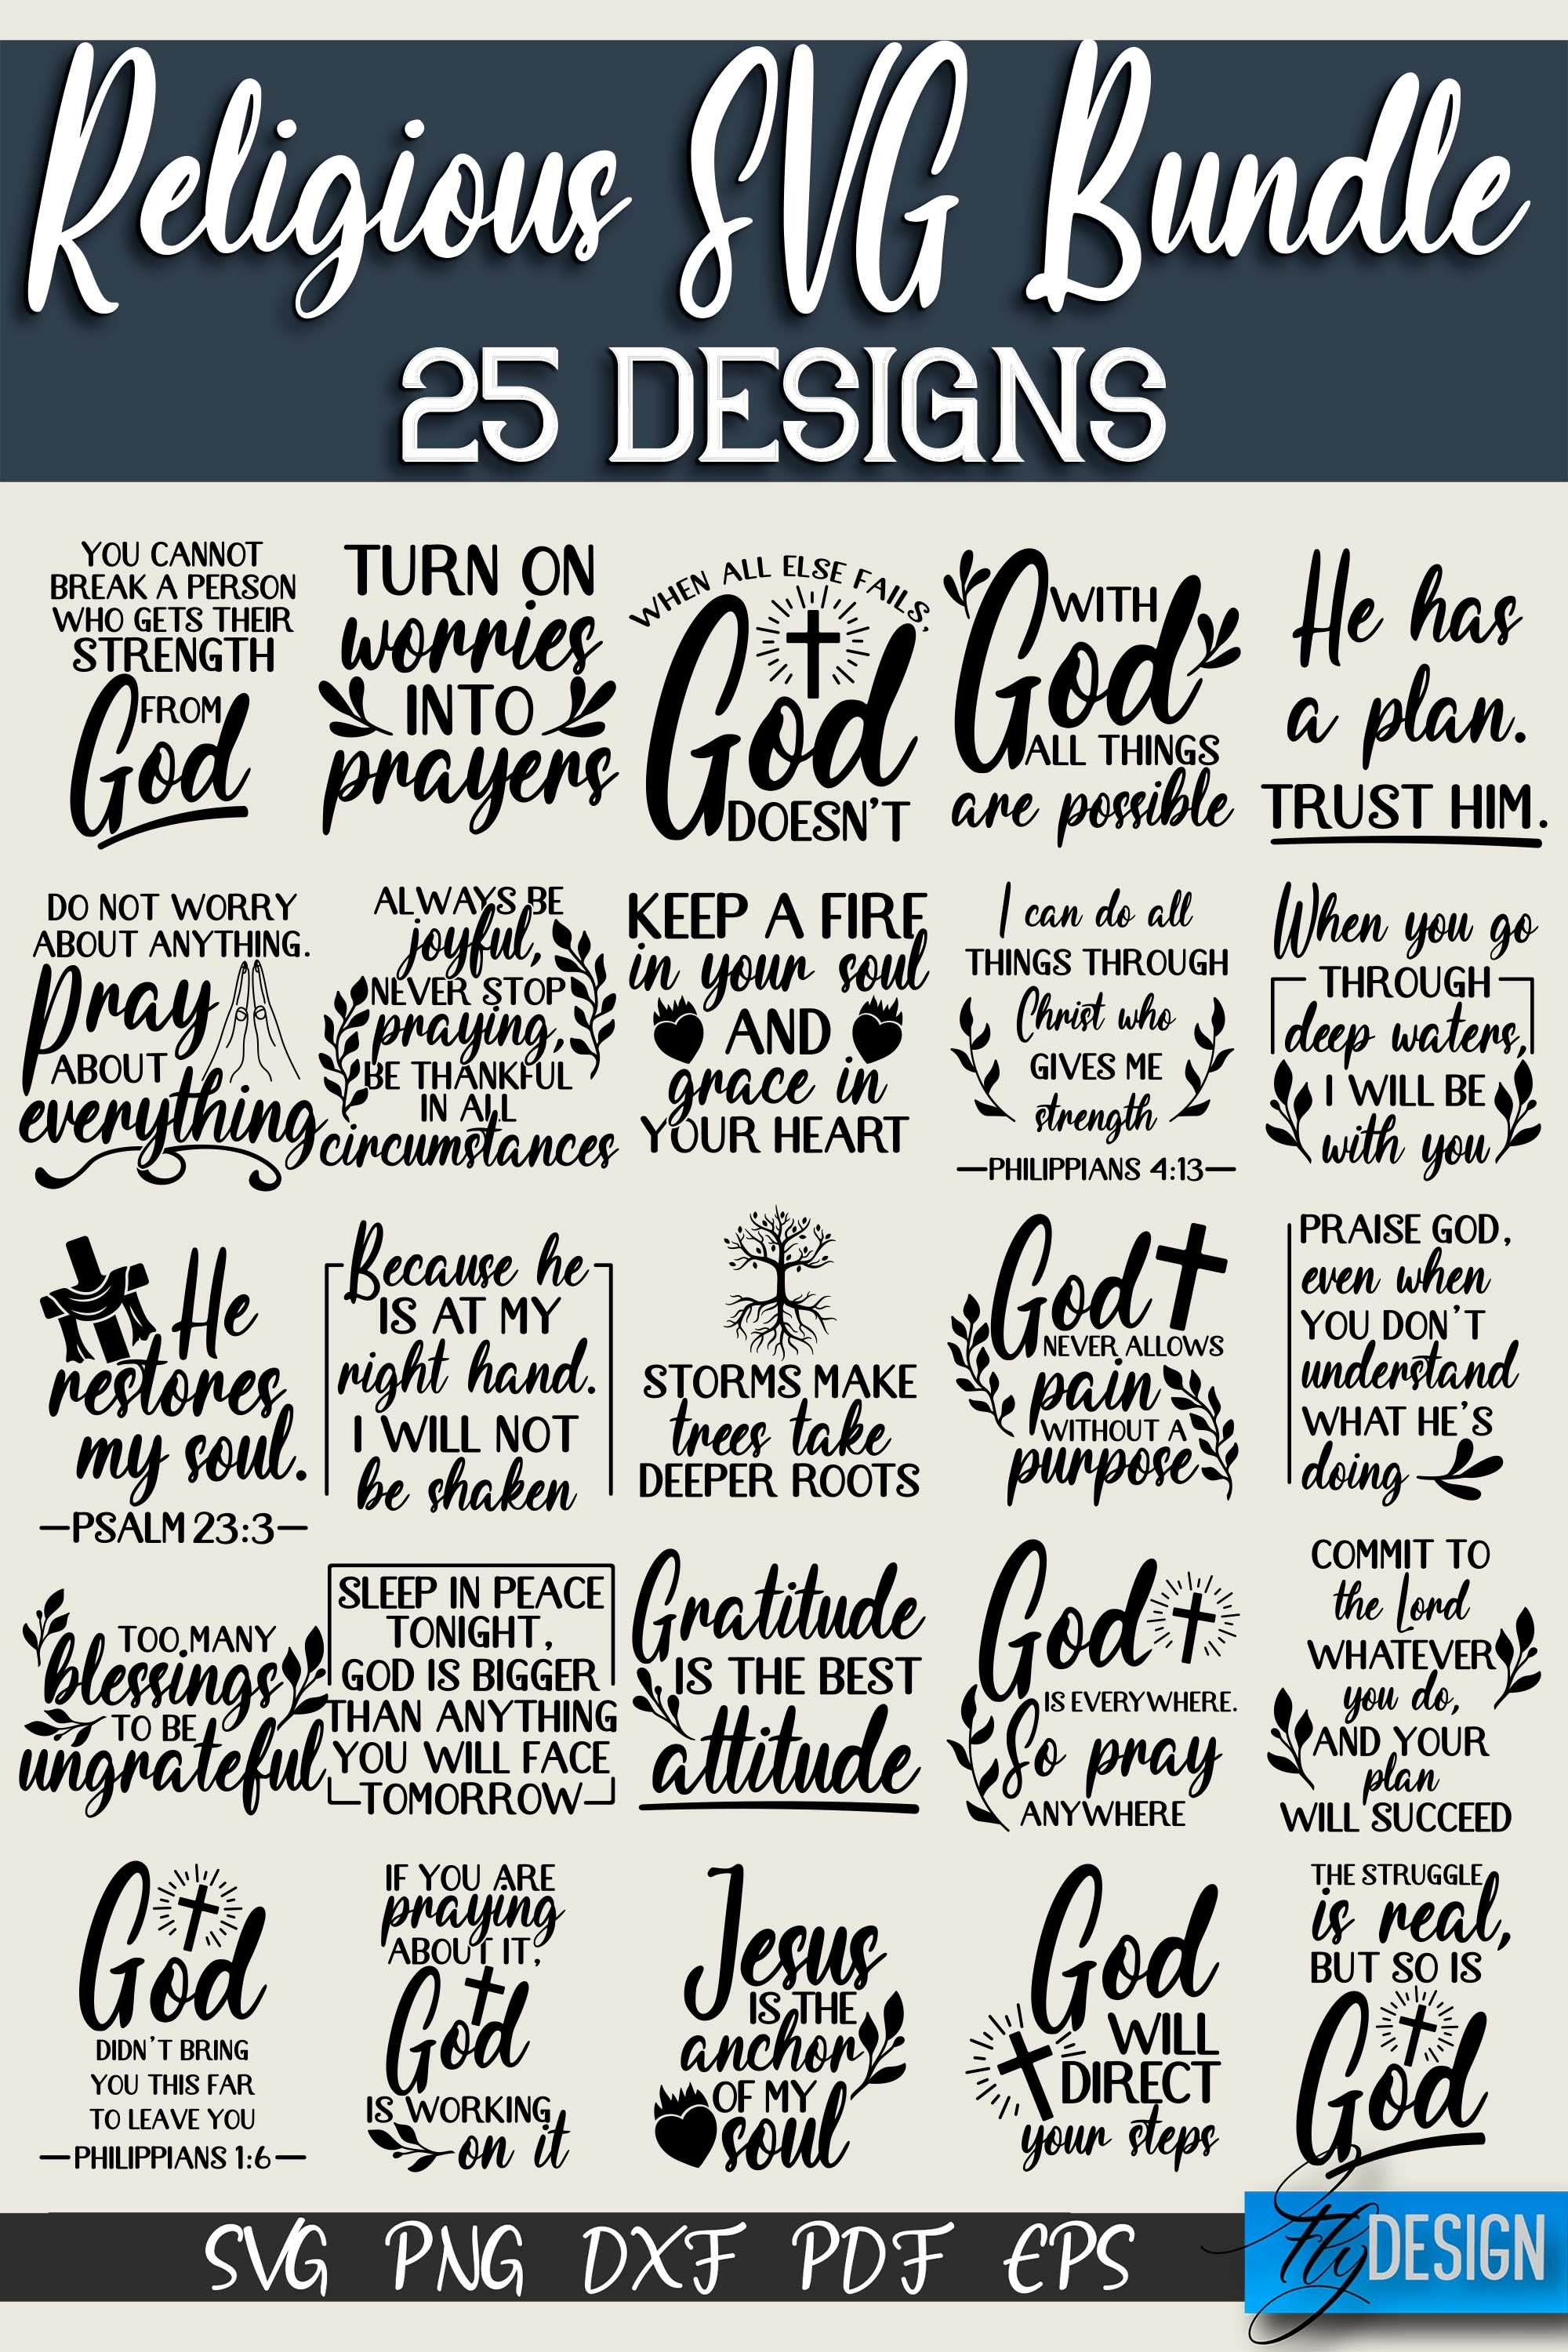 Religious SVG Bundle
25 DESIGNS
YOU CANNOT
BREAK A PERSON
WHO GETS THEIR
STRENGTH
FROM
God
TURN ON
worries
INTO
prayers
WHEN ALL ELSE FAILS,
God
DOESN'T
WITH
God
ALL THINGS
are possible
He has
a plan.
TRUST HIM.
DO NOT WORRY
ABOUT ANYTHING.
Pray
ABOUT
everything
ALWAYS BE
joyful,
NEVER STOP
praying,
BE THANKFUL
IN ALL
circumstances
KEEP A FIRE
in your soul
AND
grace in
YOUR HEART
I can do all
THINGS THROUGH
Christ who
GIVES ME
strength
—PHILIPPIANS 4:13—
When you go
THROUGH
deep waters,
I WILL BE
with you
He
restores
my soul.
—PSALM 23:3—
Because he
IS AT MY
right hand.
I WILL NOT
be shaken
STORMS MAKE
trees take
DEEPER ROOTS
God
NEVER ALLOWS
pain
WITHOUT A
purpose
PRAISE GOD,
even when
YOU DON'T
understand
WHAT HE'S
doing
TOO MANY
blessings
TO BE
ungrateful
SLEEP IN PEACE
TONIGHT,
GOD IS BIGGER
THAN ANYTHING
YOU WILL FACE
TOMORROW
Gratitude
IS THE BEST
attitude
God
IS EVERYWHERE.
So pray
ANYWHERE
COMMIT TO
the Lord
WHATEVER
you do,
AND YOUR
plan
WILL SUCCEED
God
DIDN'T BRING
YOU THIS FAR
TO LEAVE YOU
—PHILIPPIANS 1:6—
IF YOU ARE
praying
ABOUT IT,
God
IS WORKING
on it
Jesus
IS THE
anchor
OF MY
soul
God
WILL
DIRECT
your steps
THE STRUGGLE
is real,
BUT SO IS
God
SVG PNG DXF PDF EPS
Fly DESIGN